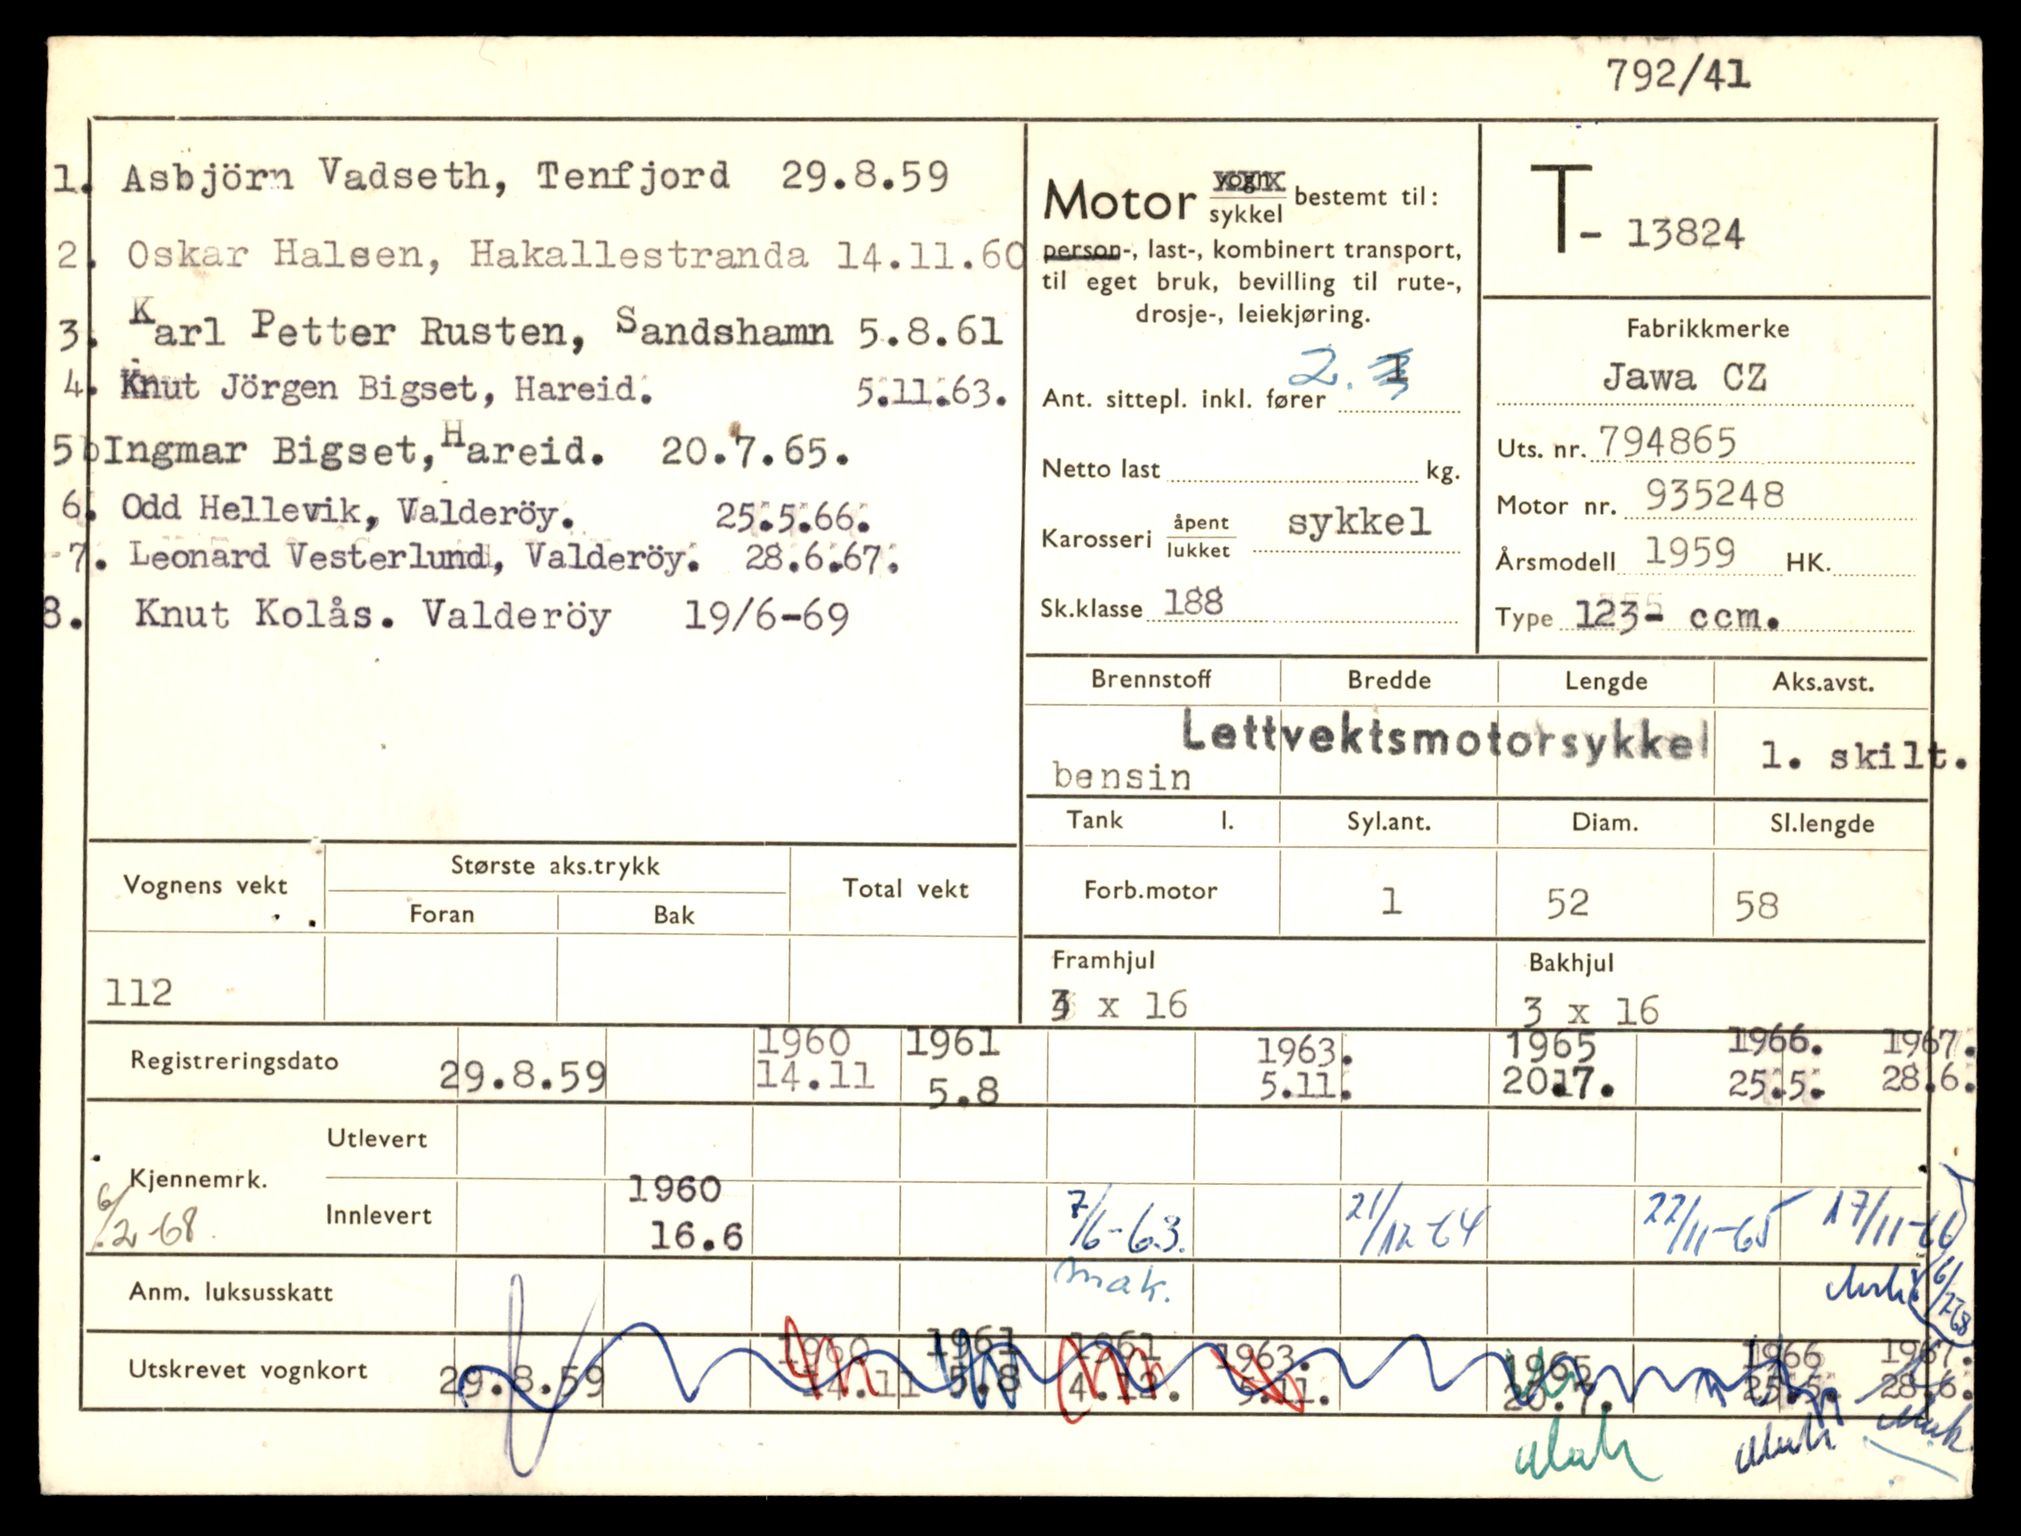 792/41
1. Asbjörn Vadseth, Tenfjord 29.8.59
2. Oskar Halsen, Hakallestranda 14.11.60
3. Karl Petter Rusten, Sandshamn 5.8.61
4. Knut Jörgen Bigset, Hareid. 5.11.63.
5 Ingmar Bigset, Hareid. 20.7.65.
6. Odd Hellevik, Valderöy. 25.5.66.
7. Leonard Vesterlund, Valderöy. 28.6.67.
8. Knut Kolås. Valderöy 19/6-69
Motor vogn sykkel bestemt til:
person-, last-, kombinert transport,
til eget bruk, bevilling til rute-,
drosje-, leiekjøring.
Ant. sittepl. inkl. fører 2.
Netto last kg.
Karosseri åpent lukket sykkel
Sk.klasse 188
T- 13824
Fabrikkmerke
Jawa CZ
Uts. nr. 794865
Motor nr. 935248
Årsmodell 1959 HK.
Type 123- ccm.
Brennstoff Bredde Lengde Aks.avst.
Lettvektsmotorsykkel 1. skilt.
bensin
Tank l. Syl.ant. Diam. Sl.lengde
Forb.motor 1 52 58
Framhjul Bakhjul
3 x 16 3 x 16
Vognens vekt Største aks.trykk Total vekt
Foran Bak
112
1960 1961 1963. 1965 1966. 1967.
Registreringsdato 29.8.59 14.11 5.8 5.11. 20.7. 25.5. 28.6.
Utlevert
Kjennemrk.
1960
Innlevert 16.6 7/6-63. 21/12-64 22/11-65 17/11-66
6/2-68
mak. 6/2-68
Anm. luksusskatt
1960 1961 1961 1963. 1965 1966 1967.
Utskrevet vognkort 29.8.59 14.11 5.8 4.12. 5.11. 20.7. 25.5. 28.6.